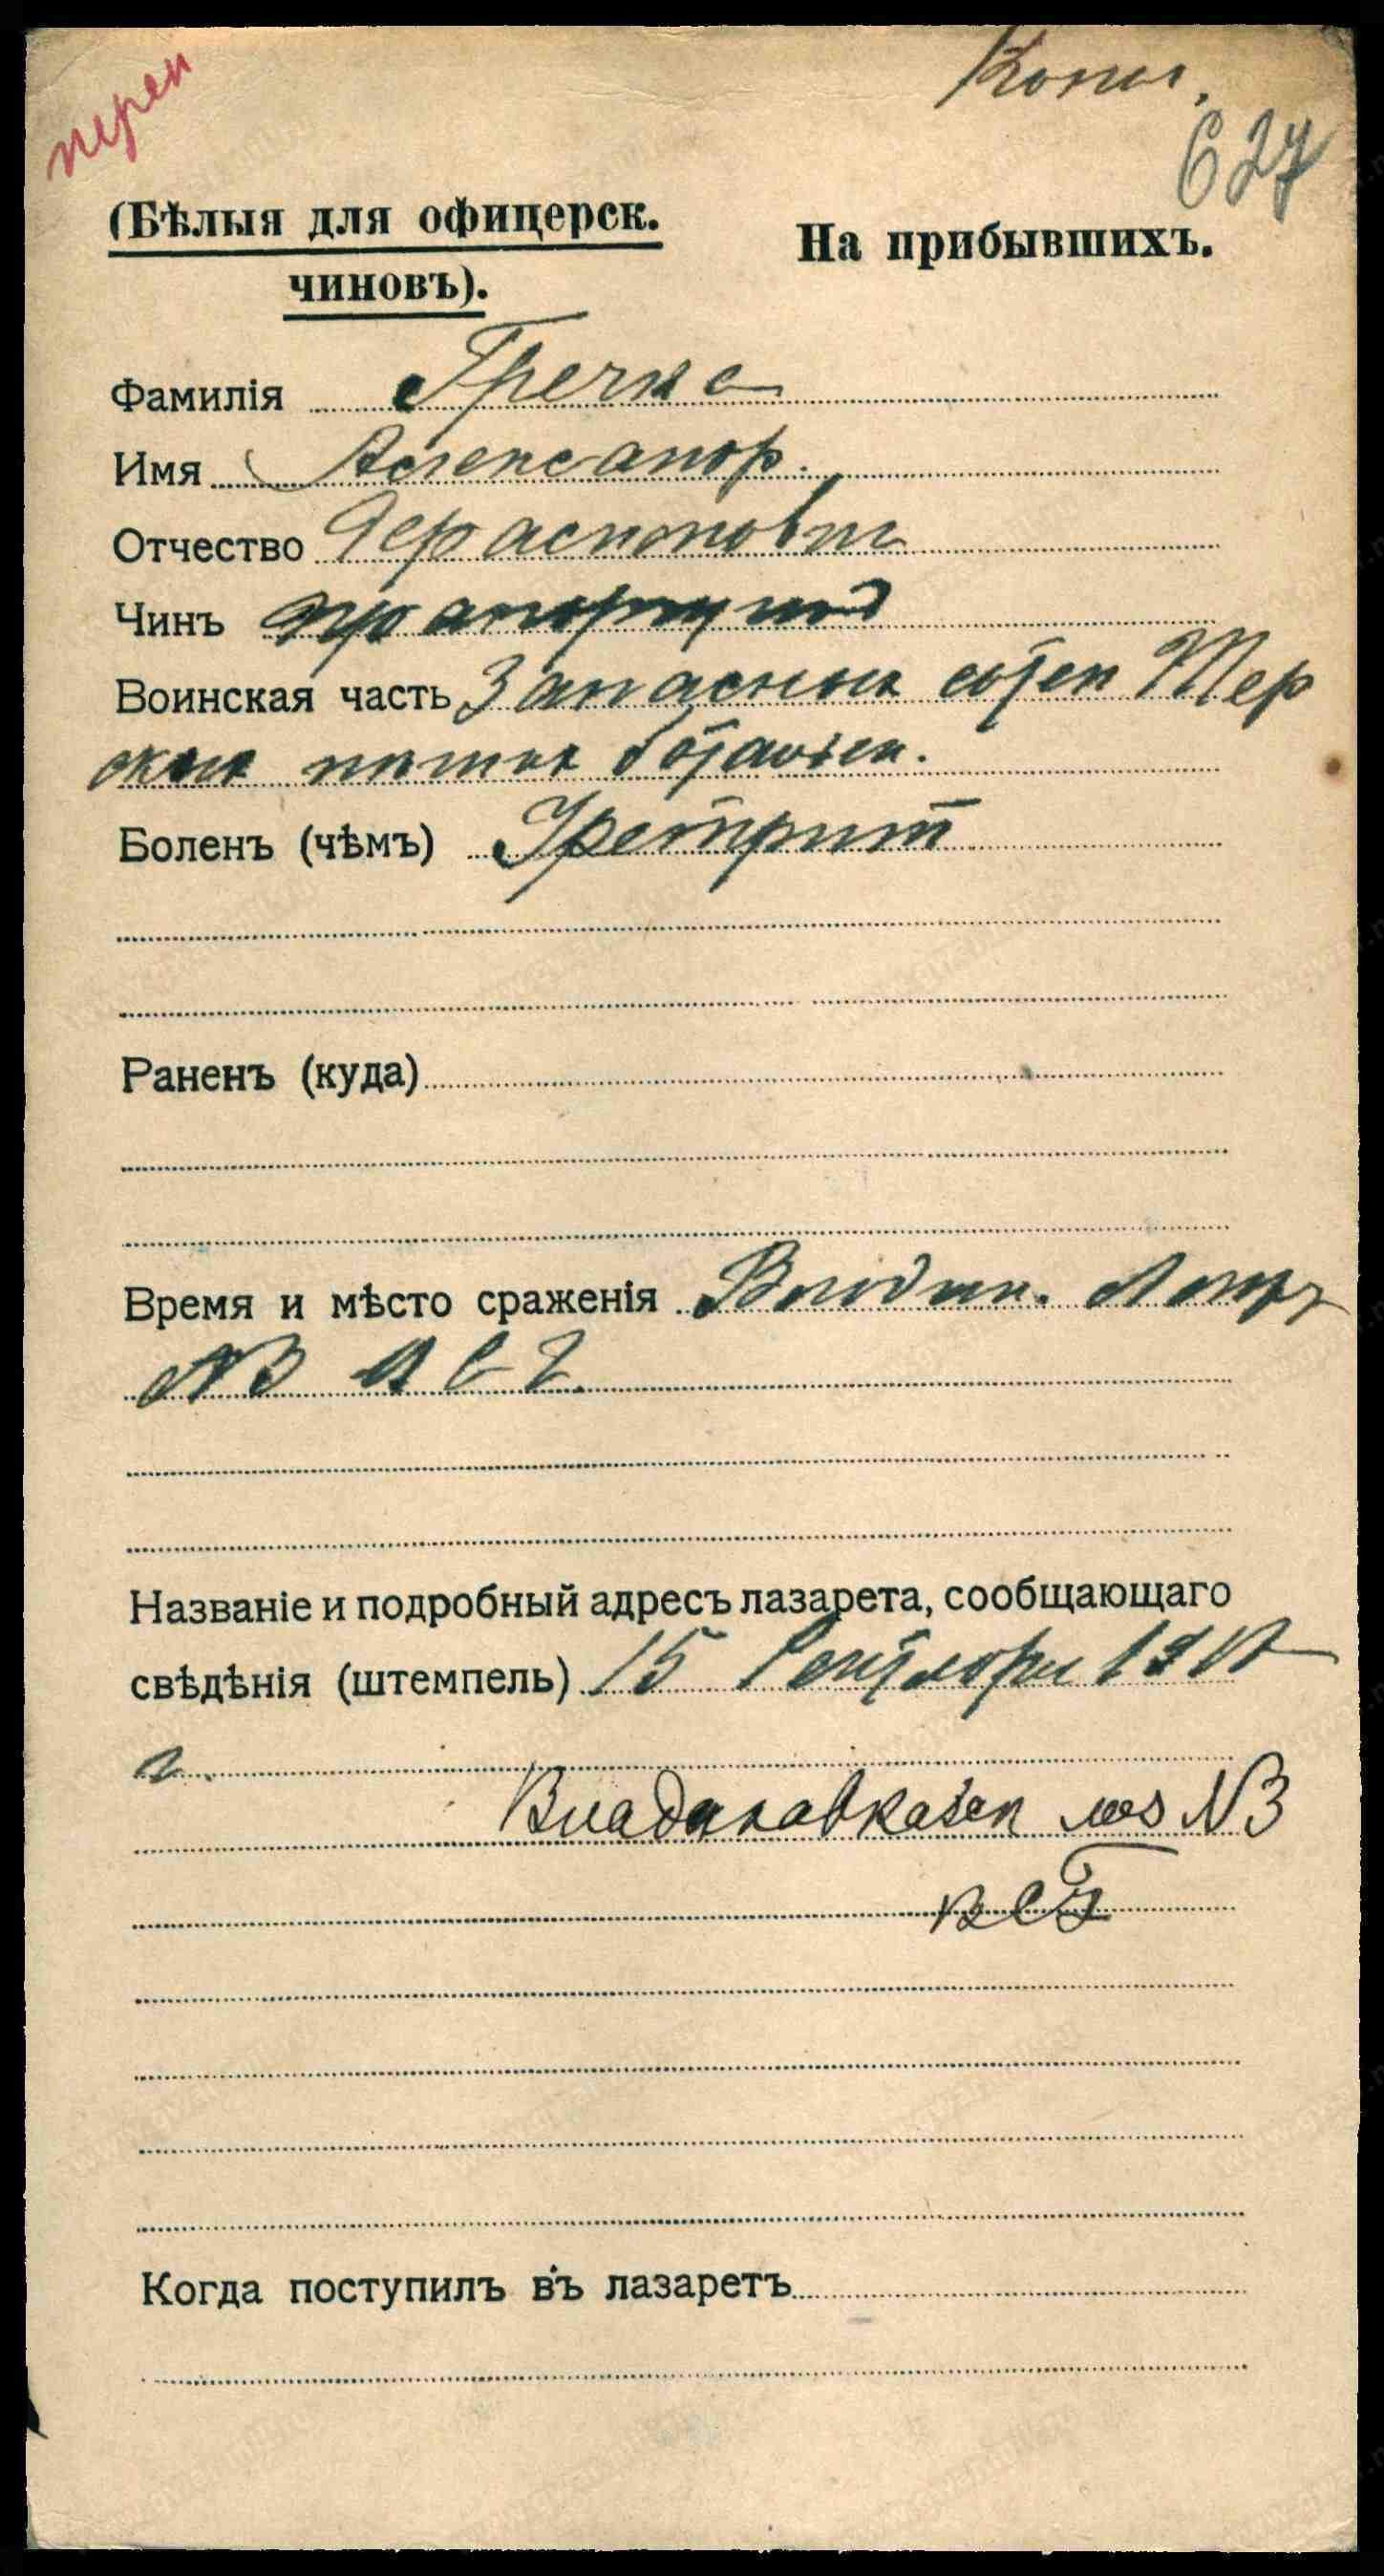 перен
Копия.
627
(Бѣлыя для офицерск.
чиновъ).
На прибывшихъ.
Фамилія Гречка
Имя Александр.
Отчество Герасимович
Чинъ прапорщик
Воинская часть Запасных сотен Тер
ских батальон.
Боленъ (чѣмъ) Уретрит
Раненъ (куда)
Время и мѣсто сраженія Владик. Лазар
№3 В С Г.
Названіе и подробный адресъ лазарета, сообщающаго
свѣдѣнія (штемпель) 15 Сентября 191
г.
Владикавказск лаз №3
ВСГ
Когда поступилъ въ лазаретъ